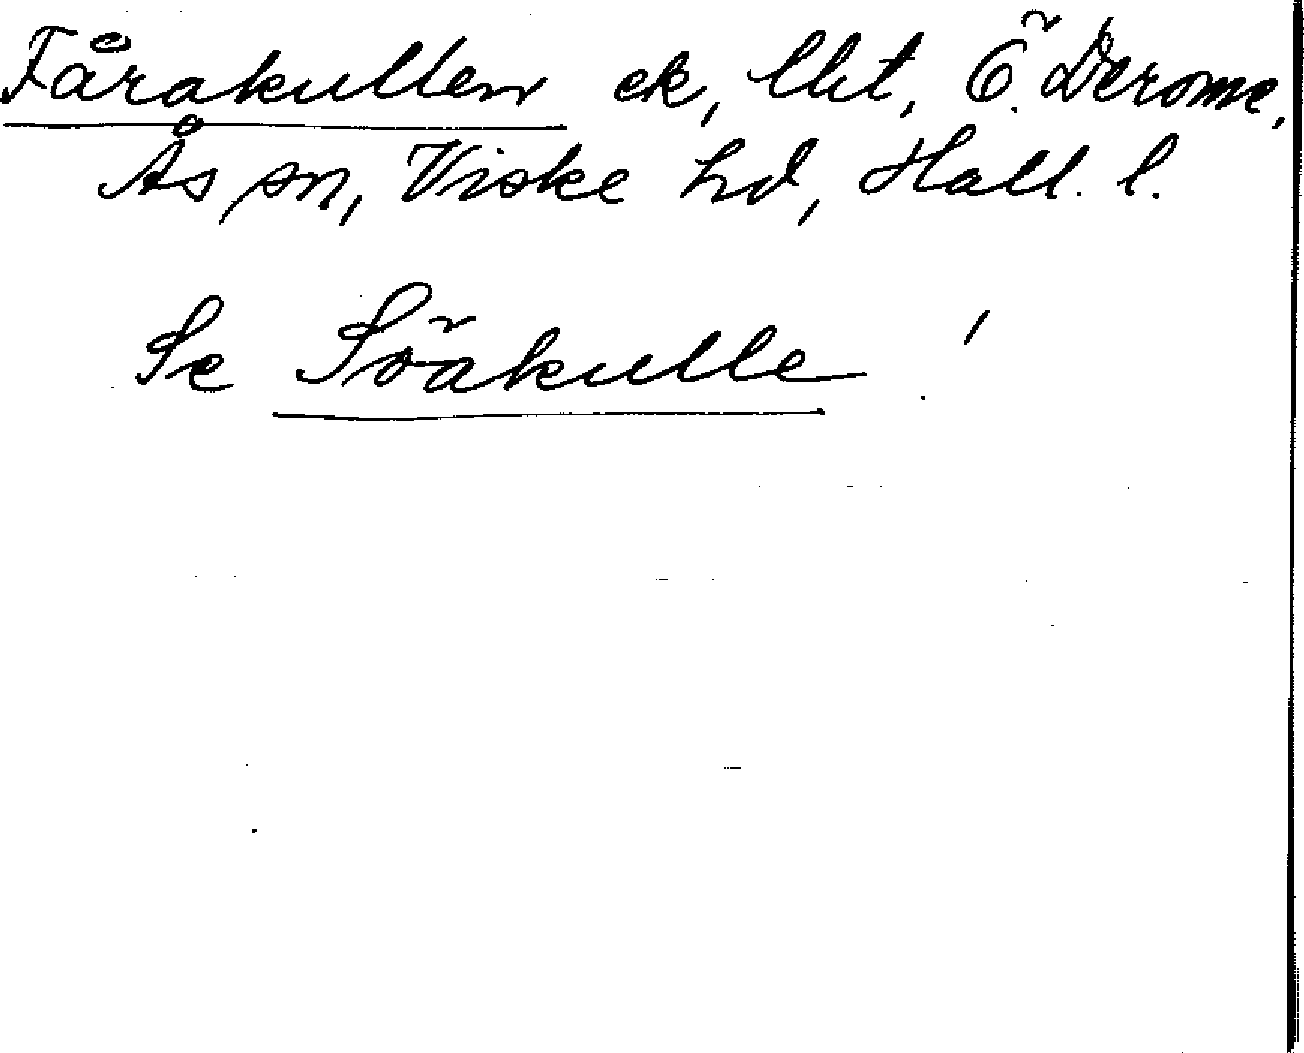 Fårakullen ek, lht, Ö. Derome,
Ås sn, Viske hd, Hall. l.
Se Söakulle